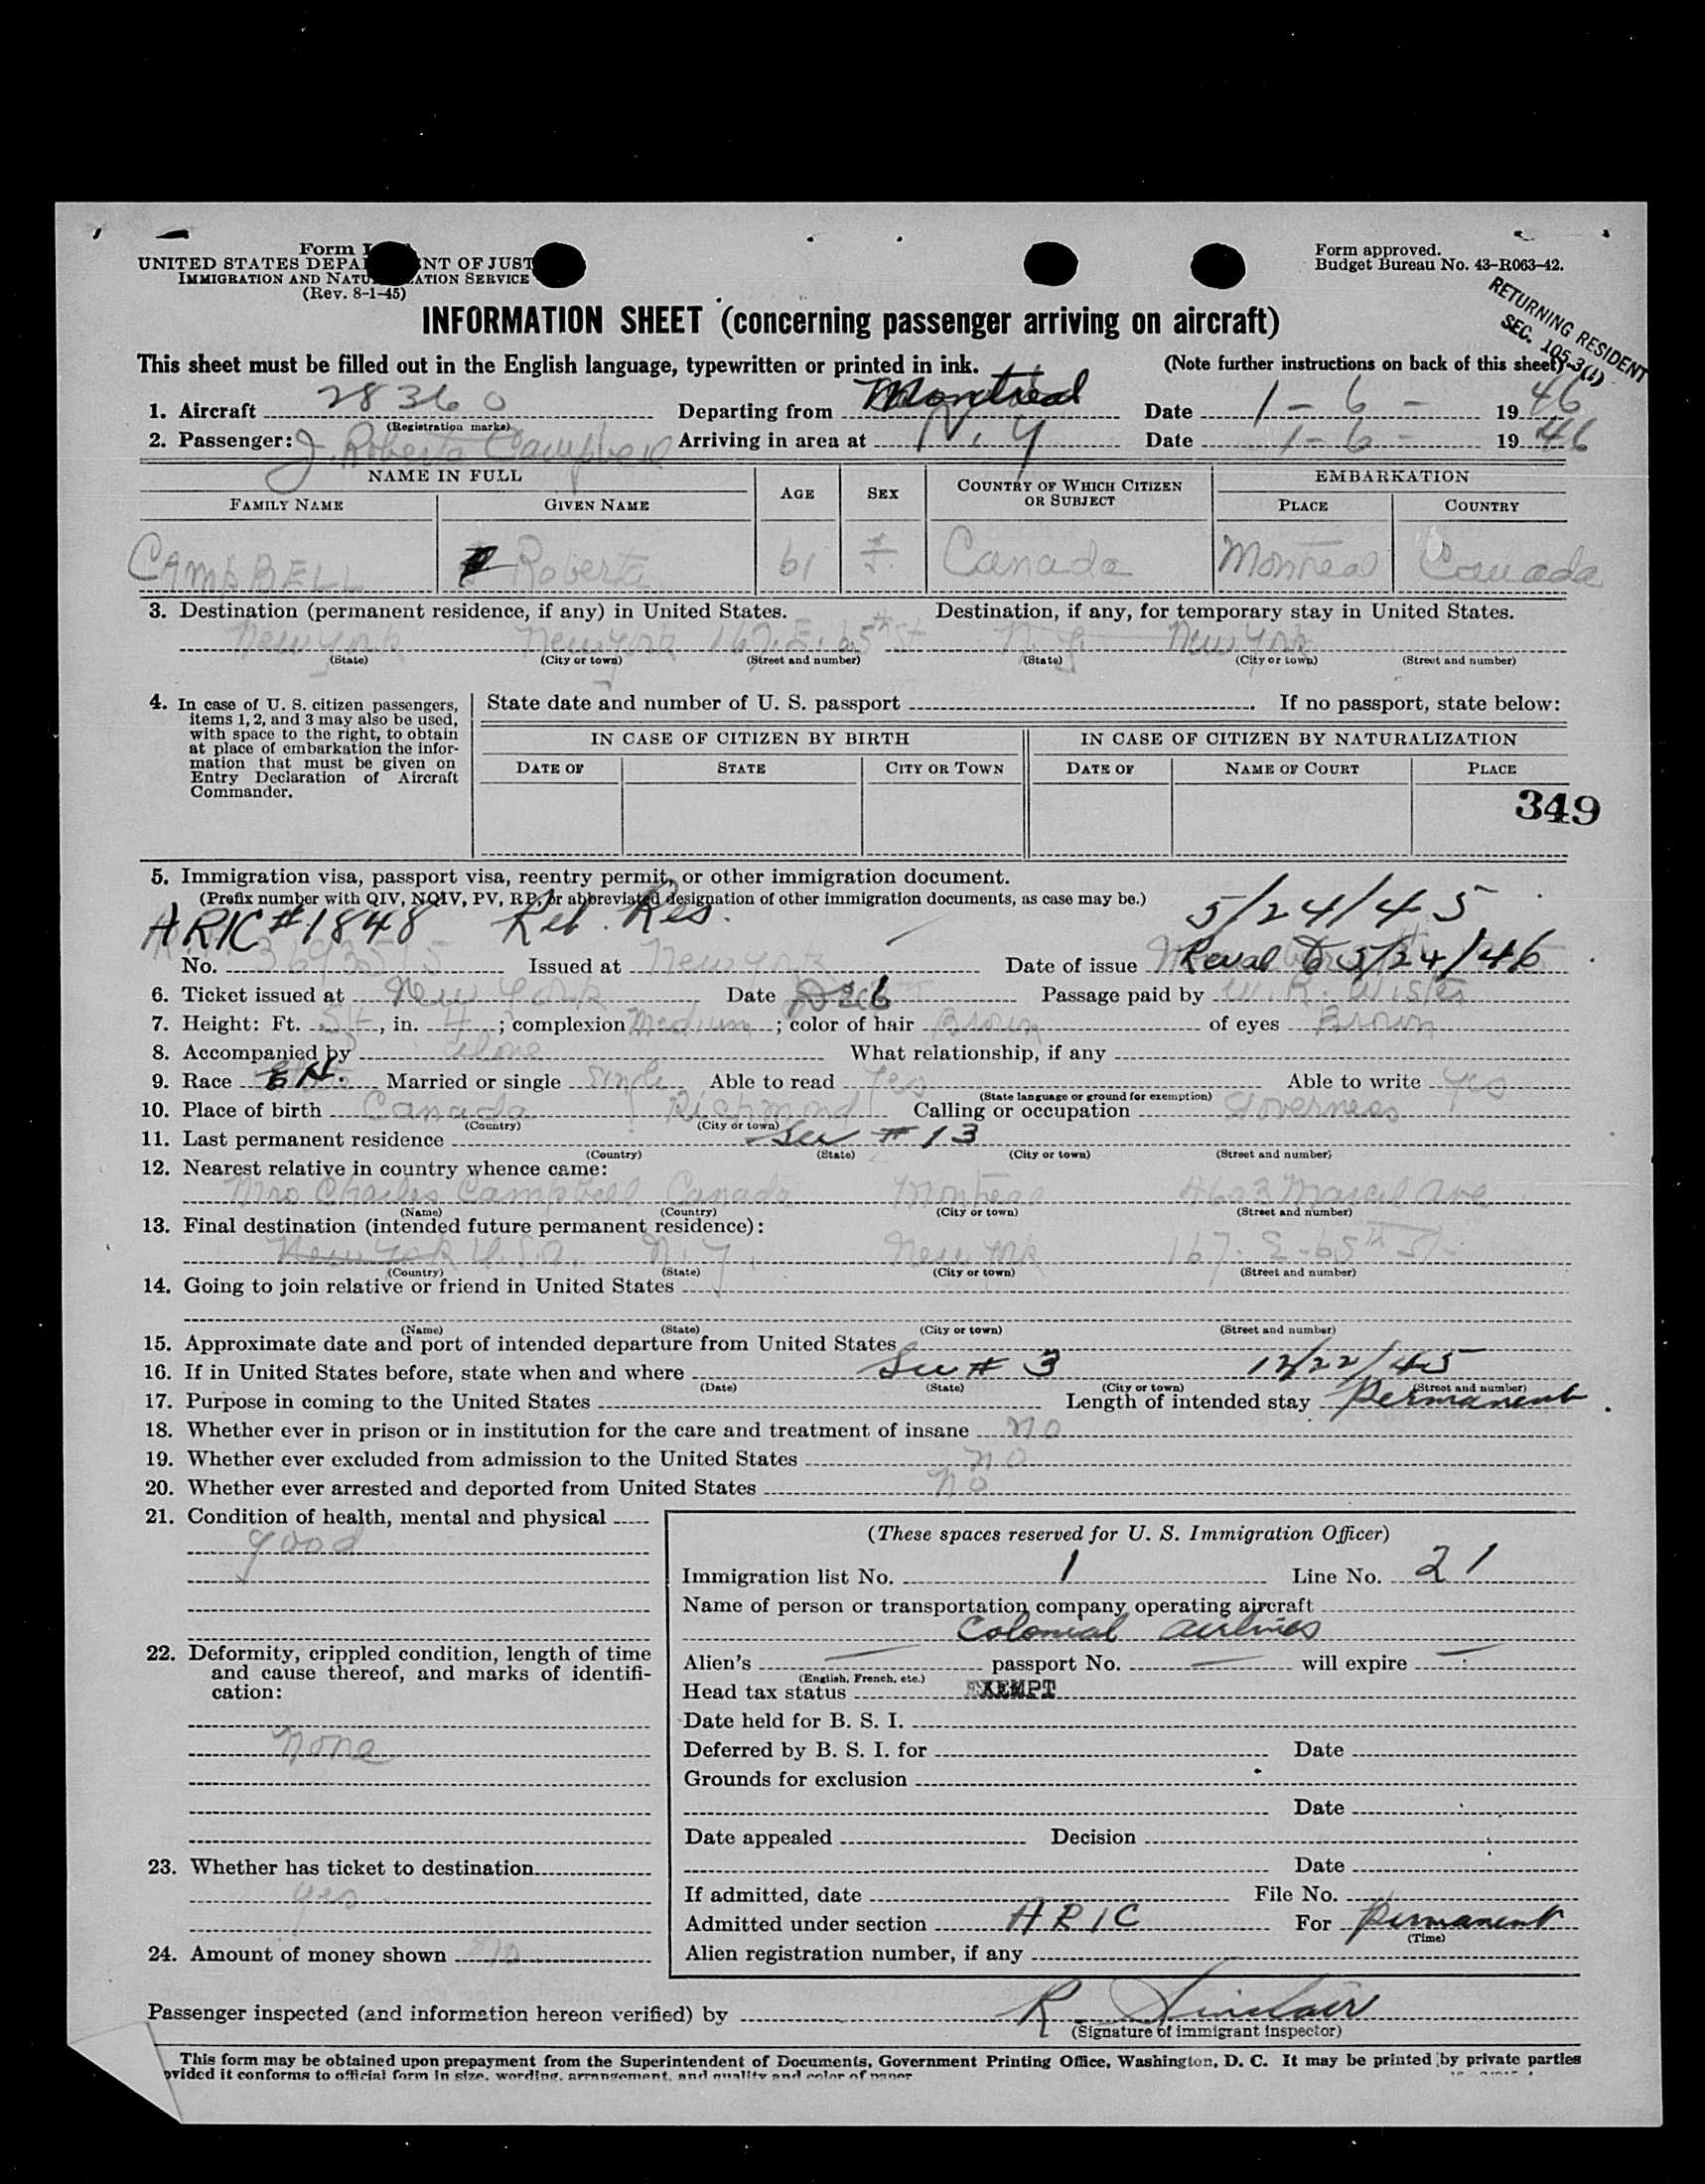 Form I
UNITED STATES DEPA NT OF JUST
IMMIGRATION AND NATU ATION SERVICE
(Rev. 8-1-45)
Form approved.
Budget Bureau No. 43-R063-42.
RETURNING RESIDENT
SEC. 105-3(1)
INFORMATION SHEET (concerning passenger arriving on aircraft)
This sheet must be filled out in the English language, typewritten or printed in ink. (Note further instructions on back of this sheet)
1. Aircraft 28360 Departing from Montreal Date 1-6- 1946
(Registration marks)
2. Passenger: J. Roberta Campbell Arriving in area at N.Y Date 1-6- 1946
NAME IN FULL AGE SEX COUNTRY OF WHICH CITIZEN OR SUBJECT EMBARKATION
FAMILY NAME GIVEN NAME PLACE COUNTRY
CAMPBELL Roberta 61 F. Canada Montreal Canada
3. Destination (permanent residence, if any) in United States. Destination, if any, for temporary stay in United States.
New York New York 167. E. 65th St N.Y. New York
(State) (City or town) (Street and number) (State) (City or town) (Street and number)
4. In case of U. S. citizen passengers, items 1, 2, and 3 may also be used, with space to the right, to obtain at place of embarkation the information that must be given on Entry Declaration of Aircraft Commander.
State date and number of U. S. passport . If no passport, state below:
IN CASE OF CITIZEN BY BIRTH IN CASE OF CITIZEN BY NATURALIZATION
DATE OF STATE CITY OR TOWN DATE OF NAME OF COURT PLACE
349
5. Immigration visa, passport visa, reentry permit, or other immigration document.
(Prefix number with QIV, NQIV, PV, RP, or abbreviated designation of other immigration documents, as case may be.)
ARIC #1848 Ret. Res. 5/24/45
No. 3693515 Issued at New York Date of issue Reval to 5/24/46
6. Ticket issued at New York Date Dec 6 Passage paid by W. R. Wister
7. Height: Ft. 5ft, in. 4; complexion Medium; color of hair Brown of eyes Brown
8. Accompanied by alone What relationship, if any
9. Race EN. Married or single Single Able to read Yes Able to write Yes
(State language or ground for exemption)
10. Place of birth Canada Richmond Calling or occupation Governess
(Country) (City or town)
11. Last permanent residence See #13
(Country) (State) (City or town) (Street and number)
12. Nearest relative in country whence came:
Mrs Charles Campbell Canada Montreal 4603 Marcil Ave
(Name) (Country) (City or town) (Street and number)
13. Final destination (intended future permanent residence):
New York U.S.A. N.Y. New York 167. E-65th St-
(Country) (State) (City or town) (Street and number)
14. Going to join relative or friend in United States
(Name) (State) (City or town) (Street and number)
15. Approximate date and port of intended departure from United States
16. If in United States before, state when and where See # 3 12/22/45
(Date) (State) (City or town) (Street and number)
17. Purpose in coming to the United States Length of intended stay Permanent
18. Whether ever in prison or in institution for the care and treatment of insane no
19. Whether ever excluded from admission to the United States no
20. Whether ever arrested and deported from United States no
21. Condition of health, mental and physical
good
22. Deformity, crippled condition, length of time and cause thereof, and marks of identification:
none
23. Whether has ticket to destination
yes
24. Amount of money shown
(These spaces reserved for U. S. Immigration Officer)
Immigration list No. 1 Line No. 21
Name of person or transportation company operating aircraft
Colonial Airlines
Alien's — passport No. — will expire —
(English, French, etc.)
Head tax status EXEMPT
Date held for B. S. I.
Deferred by B. S. I. for Date
Grounds for exclusion
Date
Date appealed Decision
Date
If admitted, date File No.
Admitted under section ARIC For Permanent
(Time)
Alien registration number, if any
Passenger inspected (and information hereon verified) by R Sinclair
(Signature of immigrant inspector)
This form may be obtained upon prepayment from the Superintendent of Documents, Government Printing Office, Washington, D. C. It may be printed by private parties
ovided it conforms to official form in size, wording, arrangement, and quality and color of paper